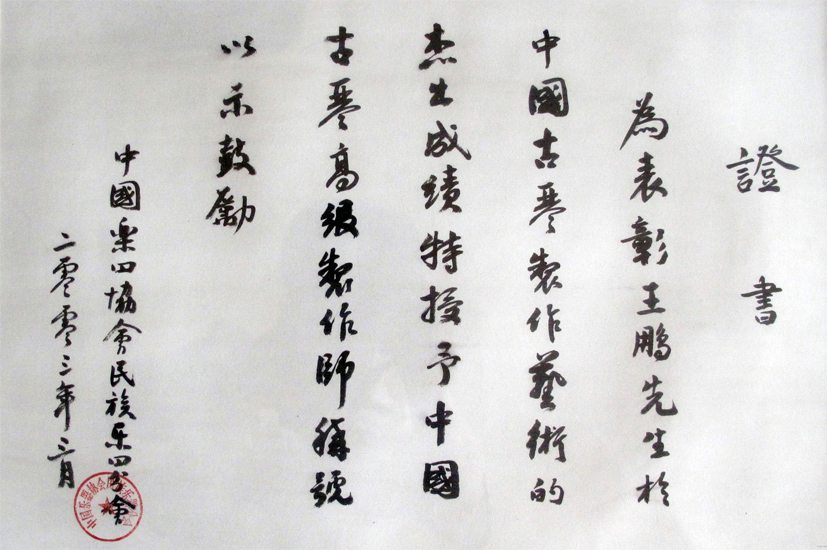 證書
為表彰王鵬先生於
中國古琴製作藝術的
杰出成績特授予中國
古琴高級製作師稱號
以示鼓勵
中國樂器協會民族樂器分會
二零零三年三月